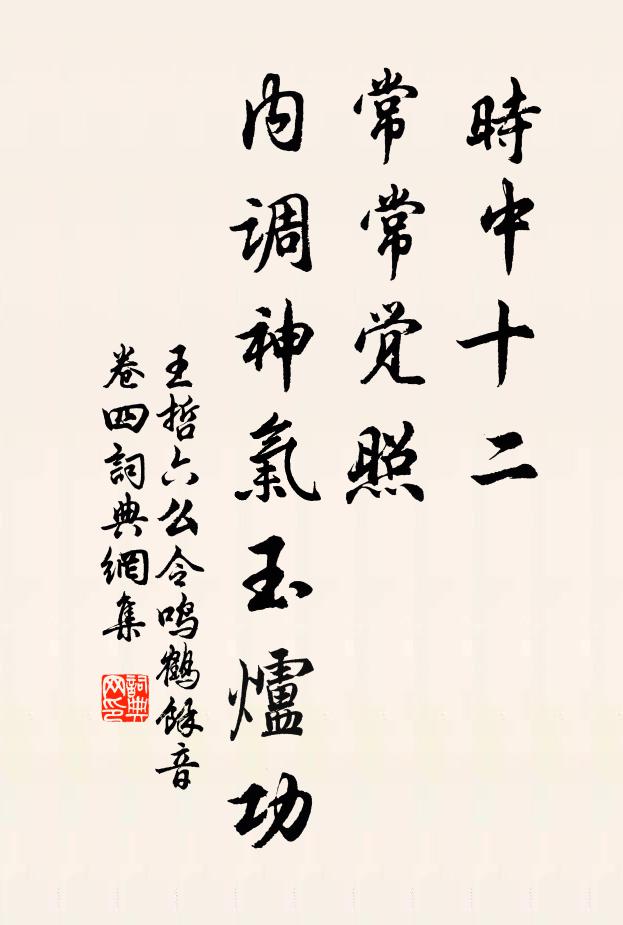 時中十二
常常觉照
内调神氣玉爐功
王哲六幺令鸣鶴餘音
卷四詞典網集
詞典网印